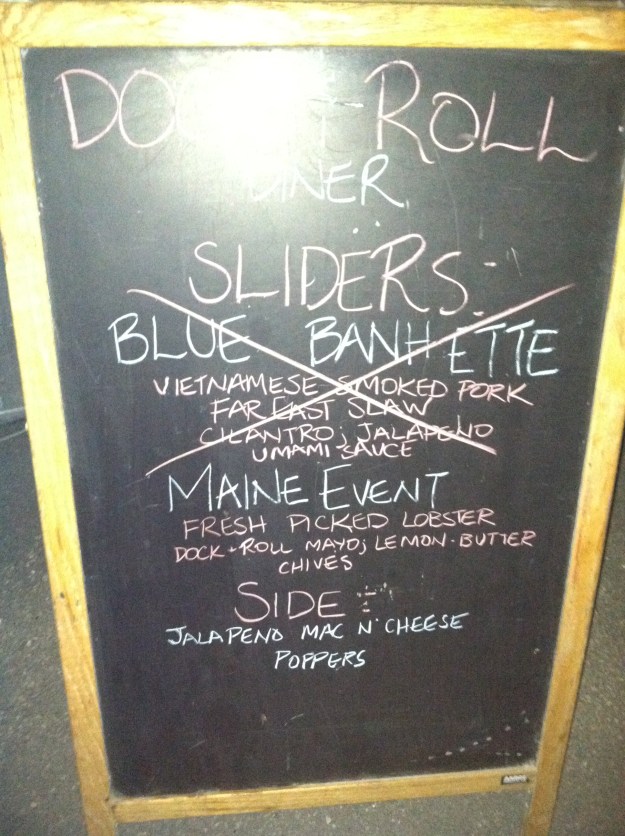 DOCK + ROLL
DINER
SLIDERS:
BLUE BANHETTE
VIETNAMESE SMOKED PORK
FAR EAST SLAW
CILANTRO; JALAPENO
UMAMI SAUCE
MAINE EVENT
FRESH PICKED LOBSTER
DOCK + ROLL MAYO; LEMON-BUTTER
CHIVES
SIDE:
JALAPENO MAC N' CHEESE
POPPERS